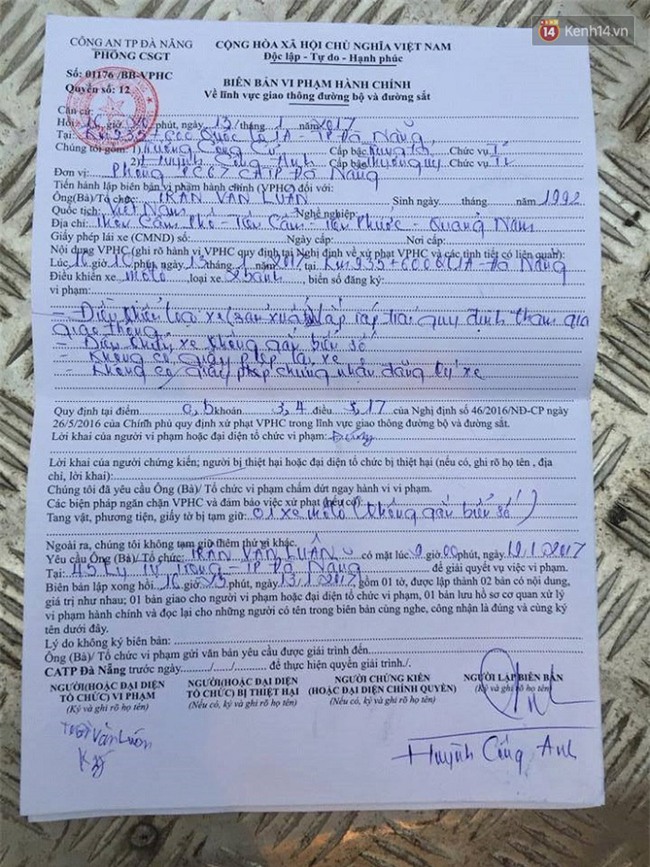 14 Kenh14.vn
CÔNG AN TP ĐÀ NẴNG
PHÒNG CSGT
CỘNG HÒA XÃ HỘI CHỦ NGHĨA VIỆT NAM
Độc lập - Tự do - Hạnh phúc
Số: 01176 /BB-VPHC
Quyển số: 12
BIÊN BẢN VI PHẠM HÀNH CHÍNH
Về lĩnh vực giao thông đường bộ và đường sắt
Căn cứ
Hồi 16 giờ phút, ngày 13 tháng 1 năm 2017
Tại: Km 935+600 Quốc lộ 1A - TP Đà Nẵng
Chúng tôi gồm: Công Cấp bậc Chức vụ
2) Huỳnh Công Anh Cấp bậc Chức vụ
Đơn vị: Phòng PC67 CATP Đà Nẵng
Tiến hành lập biên bản vi phạm hành chính (VPHC) đối với:
Ông(Bà)/Tổ chức: TRẦN VĂN LUÂN Sinh ngày tháng năm 1992
Quốc tịch: Việt Nam Nghề nghiệp:
Địa chỉ: Thôn Cẩm Phô - Tiên Cẩm - Tiên Phước - Quảng Nam
Giấy phép lái xe (CMND) số: Ngày cấp: Nơi cấp:
Nội dung VPHC (ghi rõ hành vi VPHC quy định tại Nghị định về xử phạt VPHC và các tình tiết có liên quan):
Lúc 16 giờ 10 phút, ngày 13 tháng 1 năm 2017 tại Km 935+600 QL1A - Đà Nẵng
Điều khiển xe mô tô loại xe 2 bánh, biển số đăng ký:
vi phạm:
- Điều khiển loại xe (sản xuất) lắp ráp trái quy định tham gia
giao thông
- Điều khiển xe không gắn biển số
- Không có giấy phép lái xe
- Không có giấy phép chứng nhận đăng ký xe
Quy định tại điểm khoản 3,4 điều 17 của Nghị định số 46/2016/NĐ-CP ngày
26/5/2016 của Chính phủ quy định xử phạt VPHC trong lĩnh vực giao thông đường bộ và đường sắt.
Lời khai của người vi phạm hoặc đại diện tổ chức vi phạm: Đúng
Lời khai của người chứng kiến; người bị thiệt hại hoặc đại diện tổ chức bị thiệt hại (nếu có, ghi rõ họ tên , địa
chỉ, lời khai):
Chúng tôi đã yêu cầu Ông (Bà)/ Tổ chức vi phạm chấm dứt ngay hành vi vi phạm.
Các biện pháp ngăn chặn VPHC và đảm bảo việc xử phạt (nếu có):
Tang vật, phương tiện, giấy tờ bị tạm giữ: 01 xe mô tô (không gắn biển số)
Ngoài ra, chúng tôi không tạm giữ thêm thứ gì khác.
Yêu cầu Ông (Bà)/ Tổ chức: TRẦN VĂN LUÂN có mặt lúc giờ 00 phút, ngày 2017
Tại: 45 Lý Tự Trọng - TP Đà Nẵng để giải quyết vụ việc vi phạm.
Biên bản lập xong hồi 16 giờ phút, ngày 13.1.2017, gồm 01 tờ, được lập thành 02 bản có nội dung,
giá trị như nhau; 01 bản giao cho người vi phạm hoặc đại diện tổ chức vi phạm, 01 bản lưu hồ sơ cơ quan xử lý
vi phạm hành chính và đọc lại cho những người có tên trong biên bản cùng nghe, công nhận là đúng và cùng ký
tên dưới đây.
Lý do không ký biên bản:
Ông (Bà)/ Tổ chức vi phạm gửi văn bản yêu cầu được giải trình đến
CATP Đà Nẵng trước ngày / / để thực hiện quyền giải trình./.
NGƯỜI(HOẶC ĐẠI DIỆN NGƯỜI(HOẶC ĐẠI DIỆN NGƯỜI CHỨNG KIẾN NGƯỜI LẬP BIÊN BẢN
TỔ CHỨC) VI PHẠM TỔ CHỨC) BỊ THIỆT HẠI (HOẶC ĐẠI DIỆN CHÍNH QUYỀN) (Ký và ghi rõ họ tên)
(Ký và ghi rõ họ tên) (Nếu có, ký và ghi rõ họ tên) (Nếu có, ký và ghi rõ họ tên)
Văn Luân
Huỳnh Công Anh